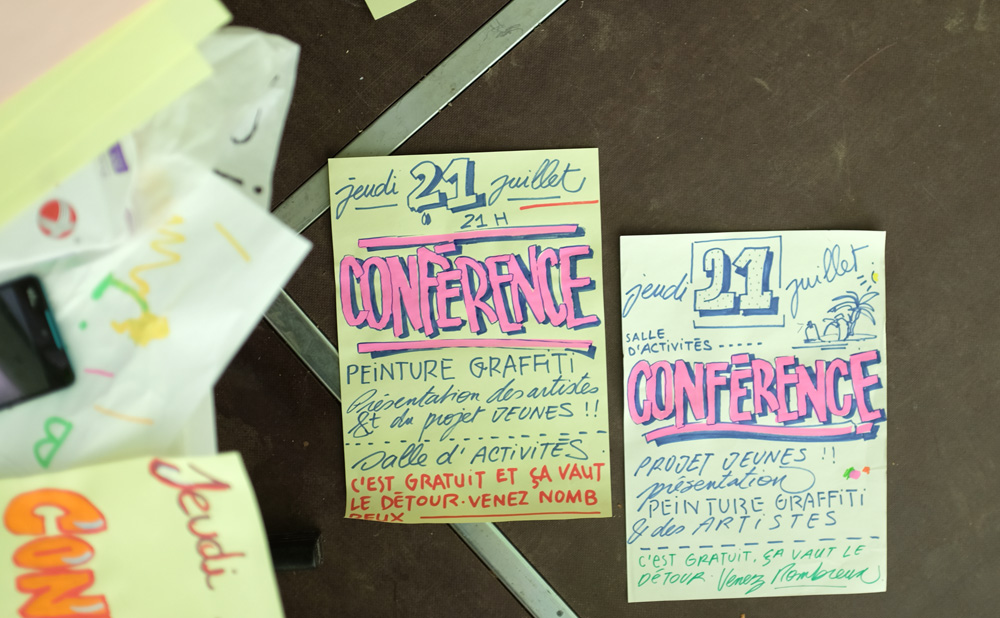 jeudi 21 juillet
21 H
CONFÉRENCE
PEINTURE GRAFFITI
Présentation des artistes
& du projet JEUNES !!
Salle d'ACTIVITÉS
C'EST GRATUIT ET ÇA VAUT
LE DÉTOUR. VENEZ NOMB
REUX
jeudi 21 juillet
SALLE
D'ACTIVITÉS
CONFÉRENCE
PROJET JEUNES !!
présentation
PEINTURE GRAFFITI
& des ARTISTES
C'EST GRATUIT. ÇA VAUT LE
DÉTOUR. Venez Nombreux
Jeudi
CON